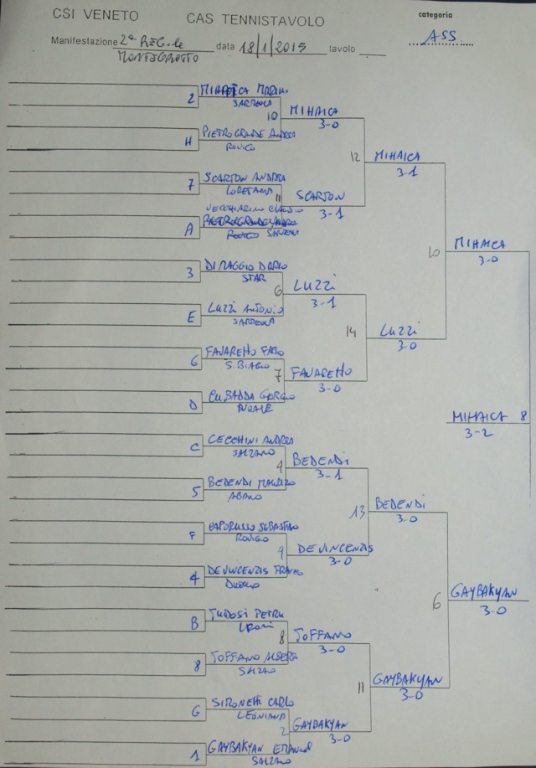 CSI VENETO CAS TENNISTAVOLO categoria
Manifestazione 2ª data 18/1/2015 tavolo ASS
MONTEGROTTO
2 MIHAICA
SARMEOLA
10 MIHAICA
3-0
H PIETROGRANDE ANDREA
ROVIGO
12 MIHAICA
3-1
7 SCARTON ANDREA
LORETANA
11 SCARTON
3-1
A
10 MIHAICA
3-0
3 DI MAGGIO DARIO
STAR
6 LUZZI
3-1
E LUZZI ANTONIO
SARMEOLA
14 LUZZI
3-0
6 FAVARETTO
S. BIAGIO
7 FAVARETTO
3-0
D
MIHAICA 8
3-2
C CECCHINI ANDREA
SALZANO
4 BEDENDI
3-1
5 BEDENDI MAURIZIO
ABANO
13 BEDENDI
3-0
F CAPORUSSO SEBASTIANO
ROVIGO
9 DE VINCENTIS
3-0
4 DE VINCENTIS
6 GAYBAKYAN
3-0
B TUDOSI PETRU
8 TOFFANO
3-0
8 TOFFANO ALBERTO
SALZANO
11 GAYBAKYAN
3-0
G SIRONETTI CARLO
2 GAYBAKYAN
3-0
1 GAYBAKYAN
SALZANO